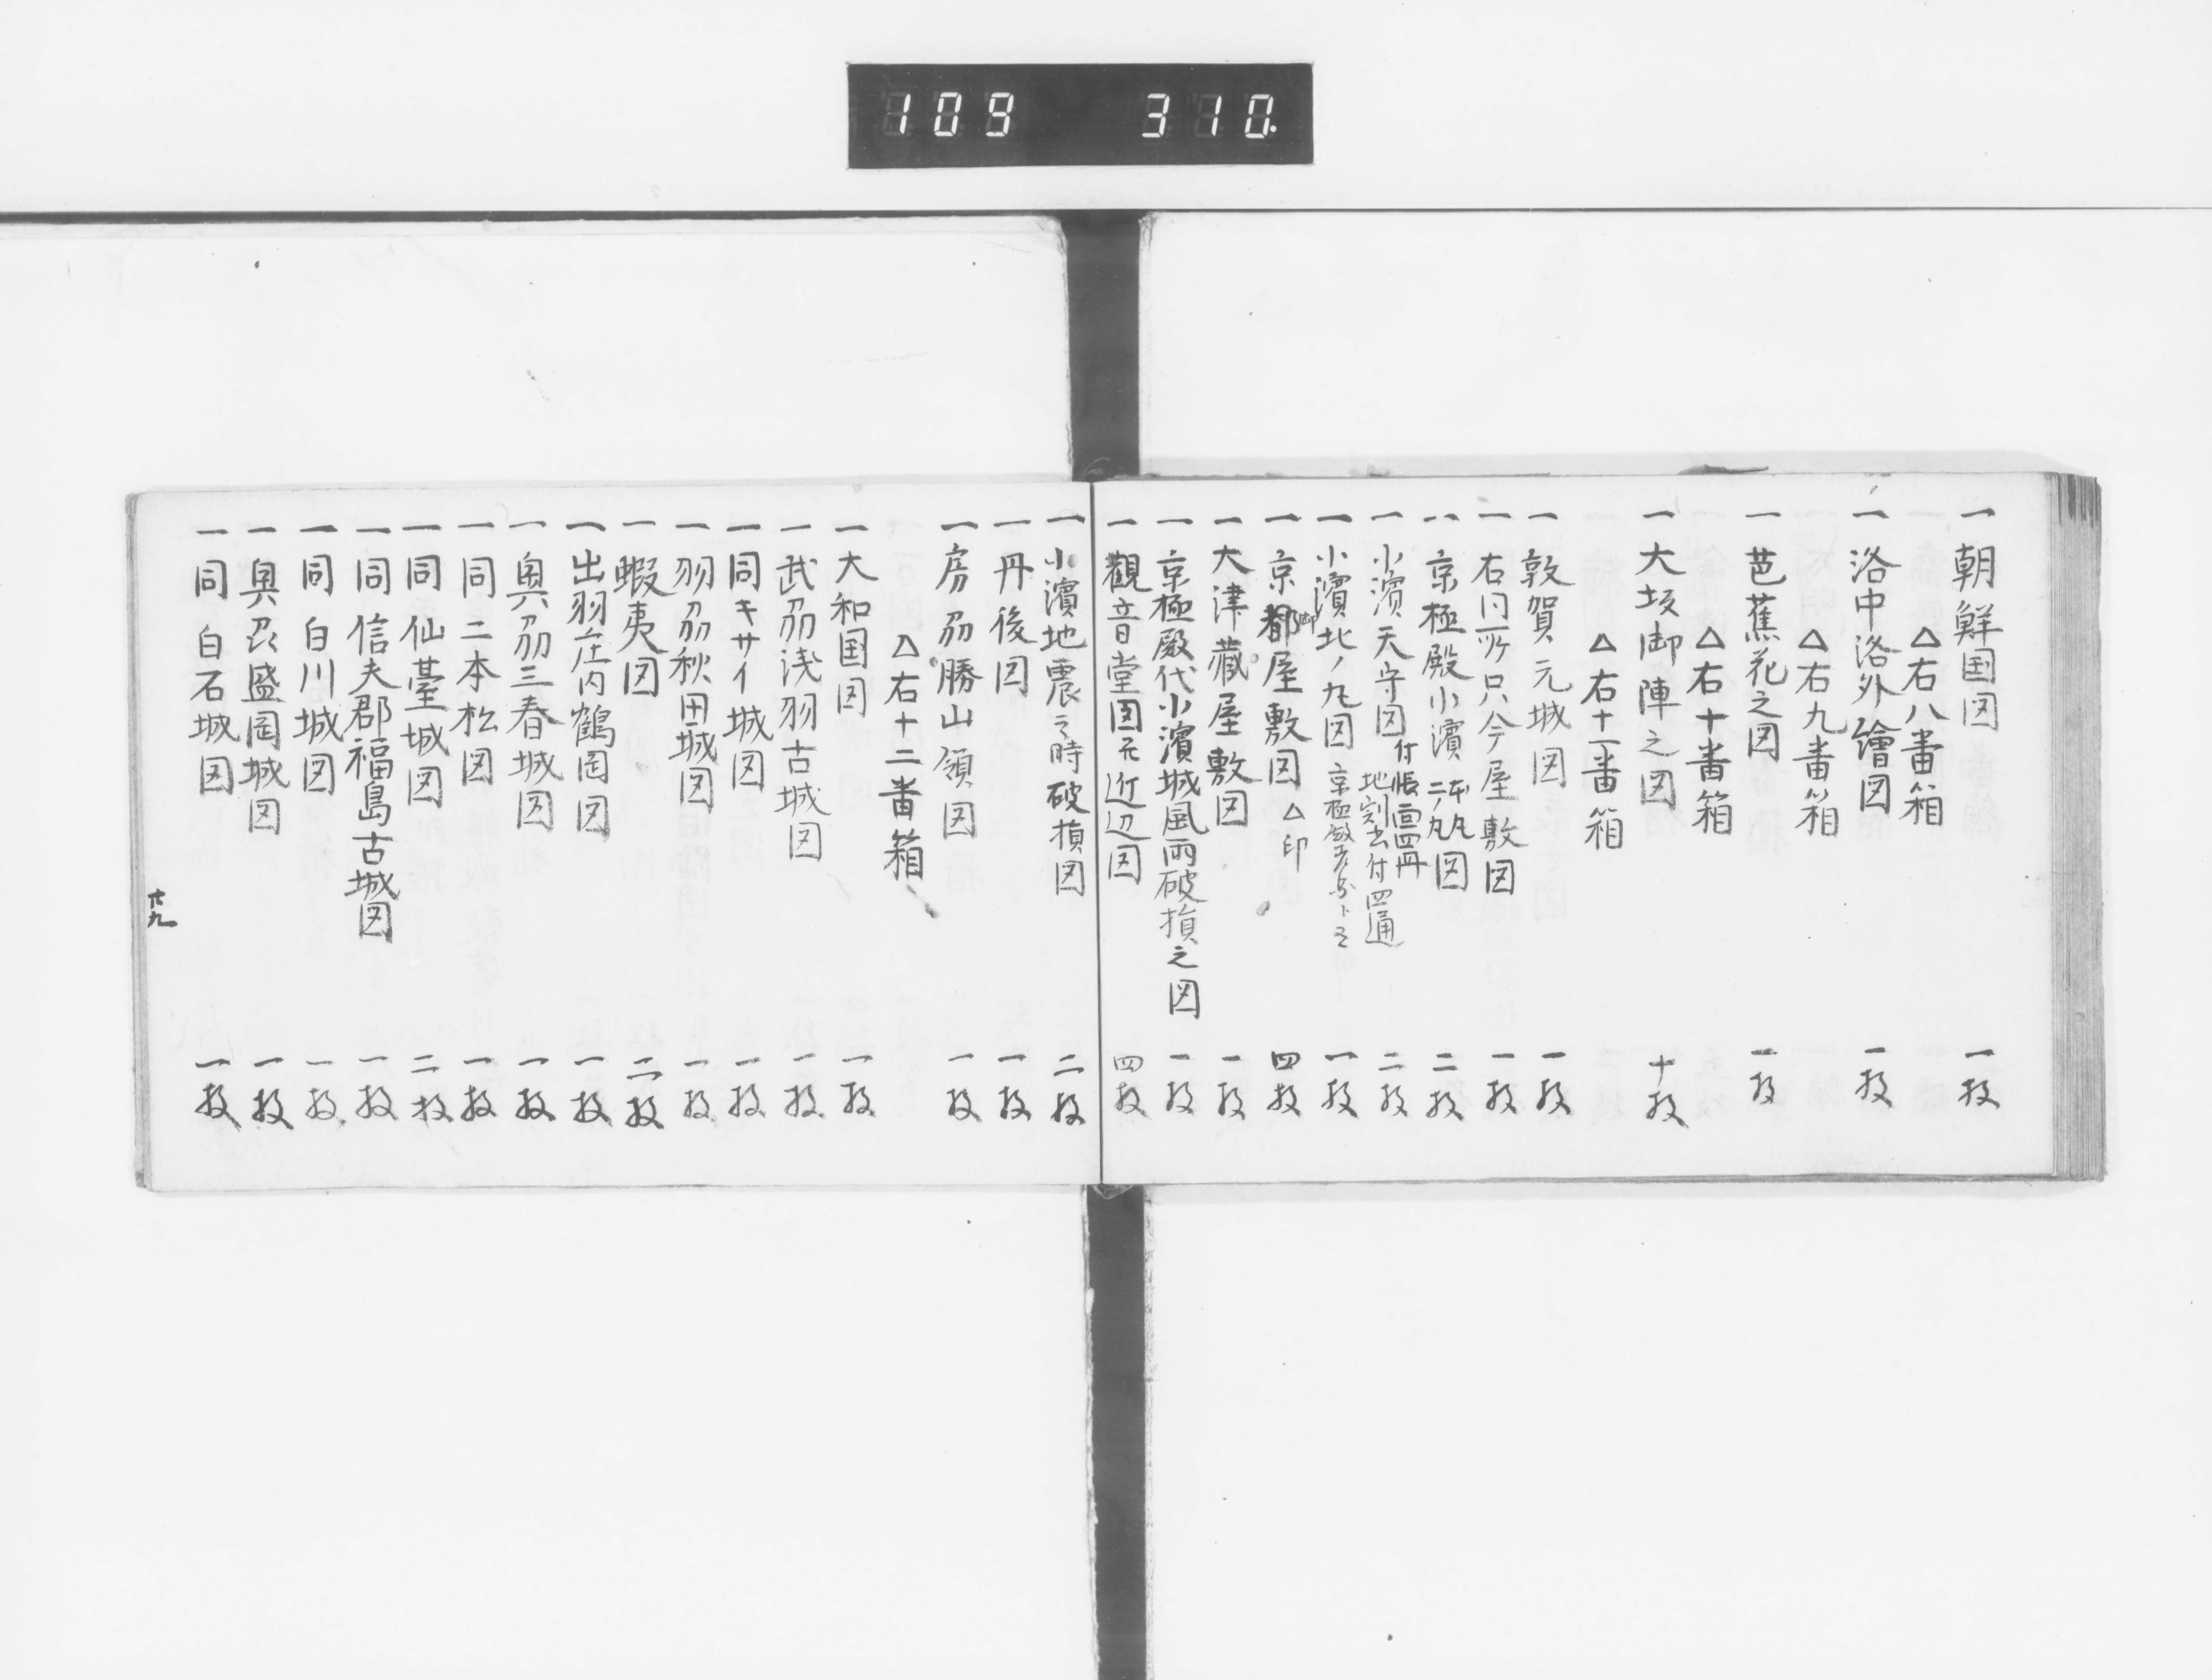 109 310.
一 朝鮮国図 一枚
△右八番箱
一 洛中洛外繪図 一枚
△右九番箱
一 芭蕉花之図 一枚
△右十番箱
一 大坂御陣之図 十枚
△右十一番箱
一 敦賀元城図 一枚
一 右同所只今屋敷図 一枚
一 京極殿小濱本丸二ノ丸図 二枚
一 小濱天守図 地割書付四通 二枚
一 小濱北ノ丸図 一枚
一 京都御屋敷図 △印 四枚
一 大津蔵屋敷図 一枚
一 京極殿代小濱城風雨破損之図 一枚
一 觀音堂図元近辺図 四枚
一 小濱地震之時破損図 二枚
一 丹後図 一枚
一 房刕勝山領図 一枚
△右十二番箱
一 大和国図 一枚
一 武刕浅羽古城図 一枚
一 同キサイ城図 一枚
一 羽刕秋田城図 一枚
一 蝦夷図 二枚
一 出羽庄内鶴岡図 一枚
一 奥刕三春城図 一枚
一 同二本松図 一枚
一 同仙臺城図 二枚
一 同信夫郡福島古城図 一枚
一 同白川城図 一枚
一 奥刕盛岡城図 一枚
一 同白石城図 一枚